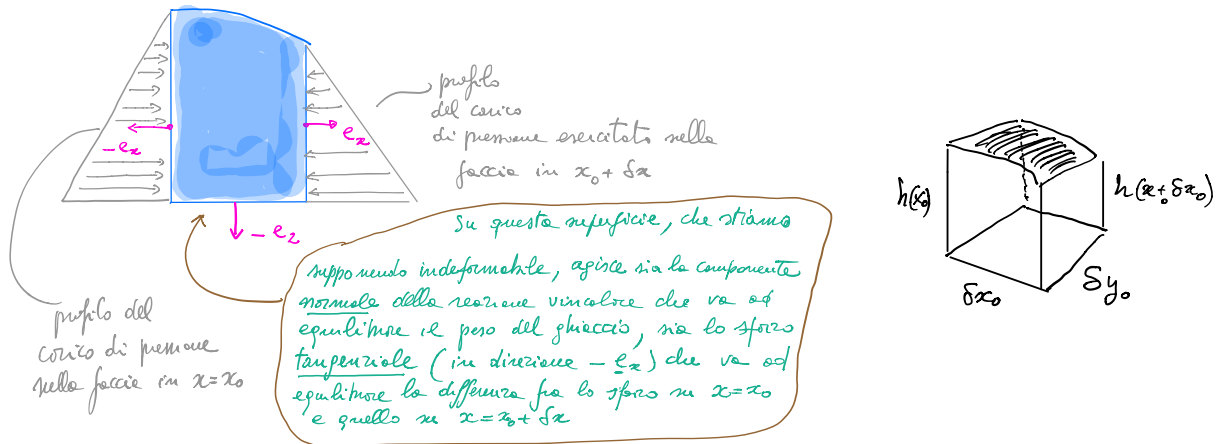 -e_x
e_x
-e_z
profilo
del carico
di pressione esercitato nella
faccia in x₀ + δx
profilo del
carico di pressione
nella faccia in x = x₀
Su questa superficie, che stiamo
supponendo indeformabile, agisce sia la componente
normale della reazione vincolare che va ad
equilibrare il peso del ghiaccio, sia lo sforzo
tangenziale (in direzione - e_x) che va ad
equilibrare la differenza fra lo sforzo su x = x₀
e quello su x = x₀ + δx
h(x₀)
h(x₀ + δx₀)
δx₀
δy₀